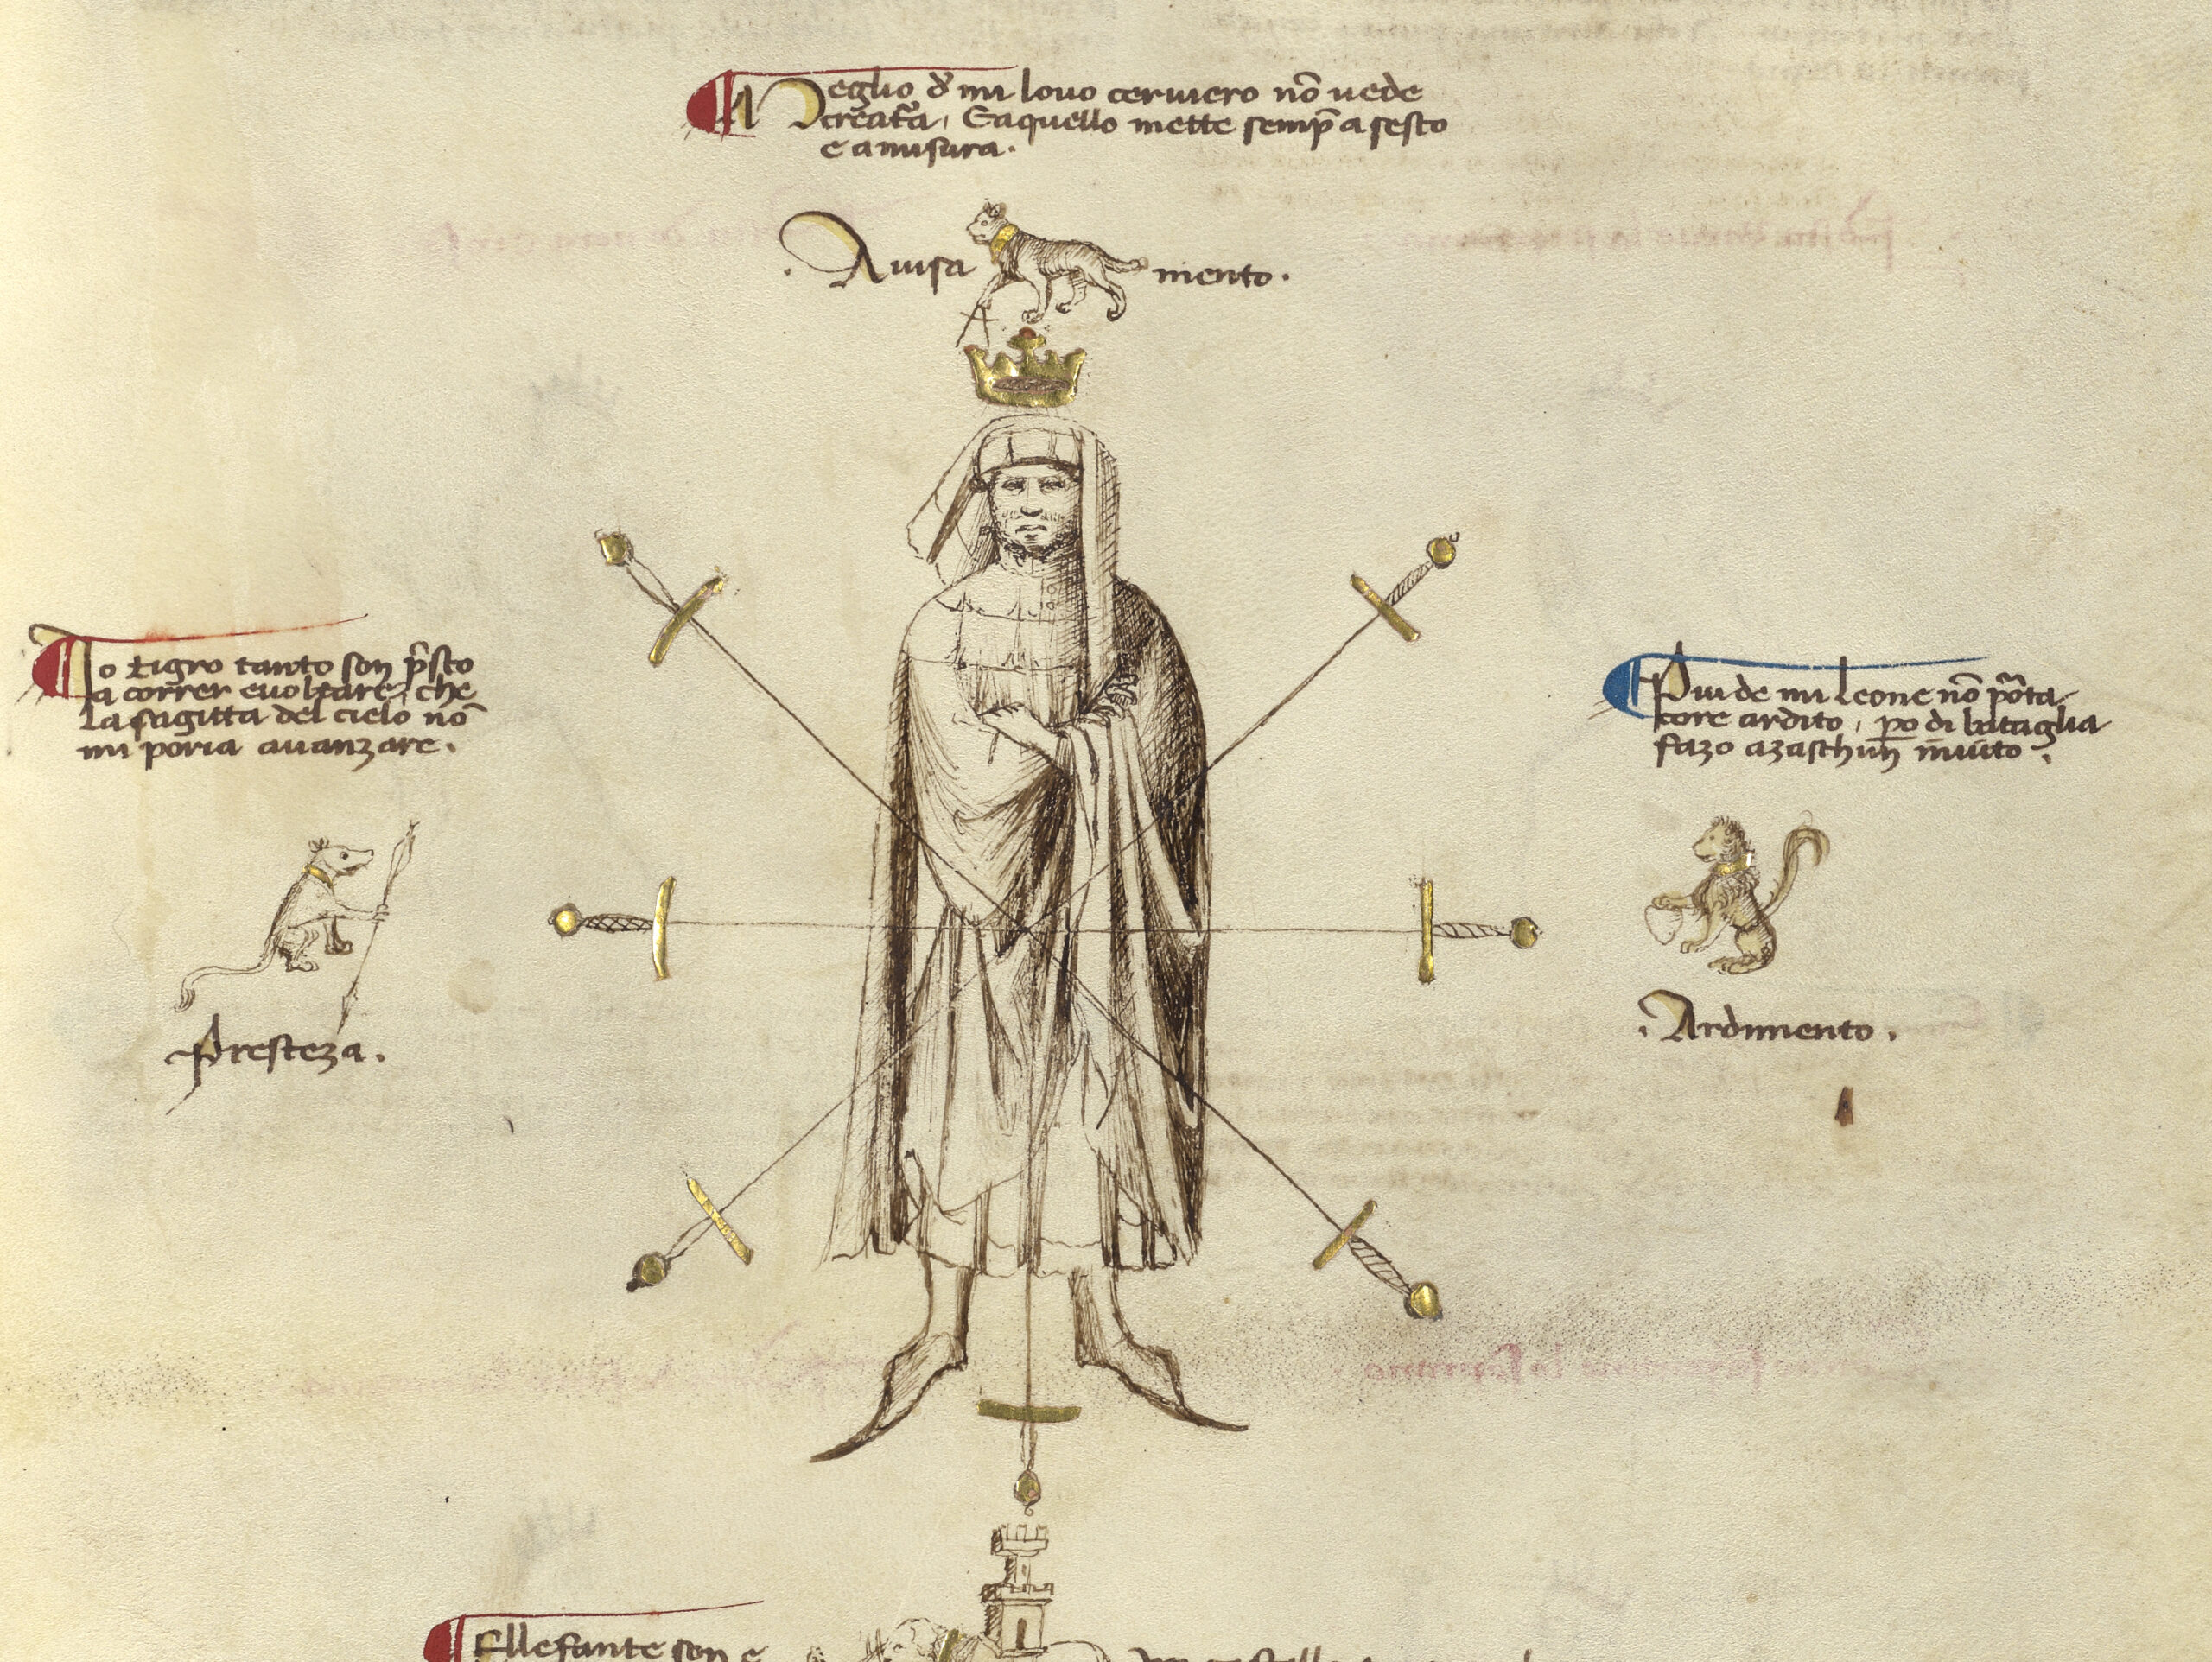 Meglio de mi lovo cerviero nõ vede
creat̃a, Eaquello mette semp̃ a sesto
e a misura.
. Avisa mento .
Io tigro tanto son p̃sto
a correr e voltare, che
La sagitta del cielo nõ
mi poria avanzare.
Presteza .
Piu de mi Leone nõ porta
core ardito, p̱o di bataglia
fazo a zaschun invito.
. Ardimento .
Ellefante son e